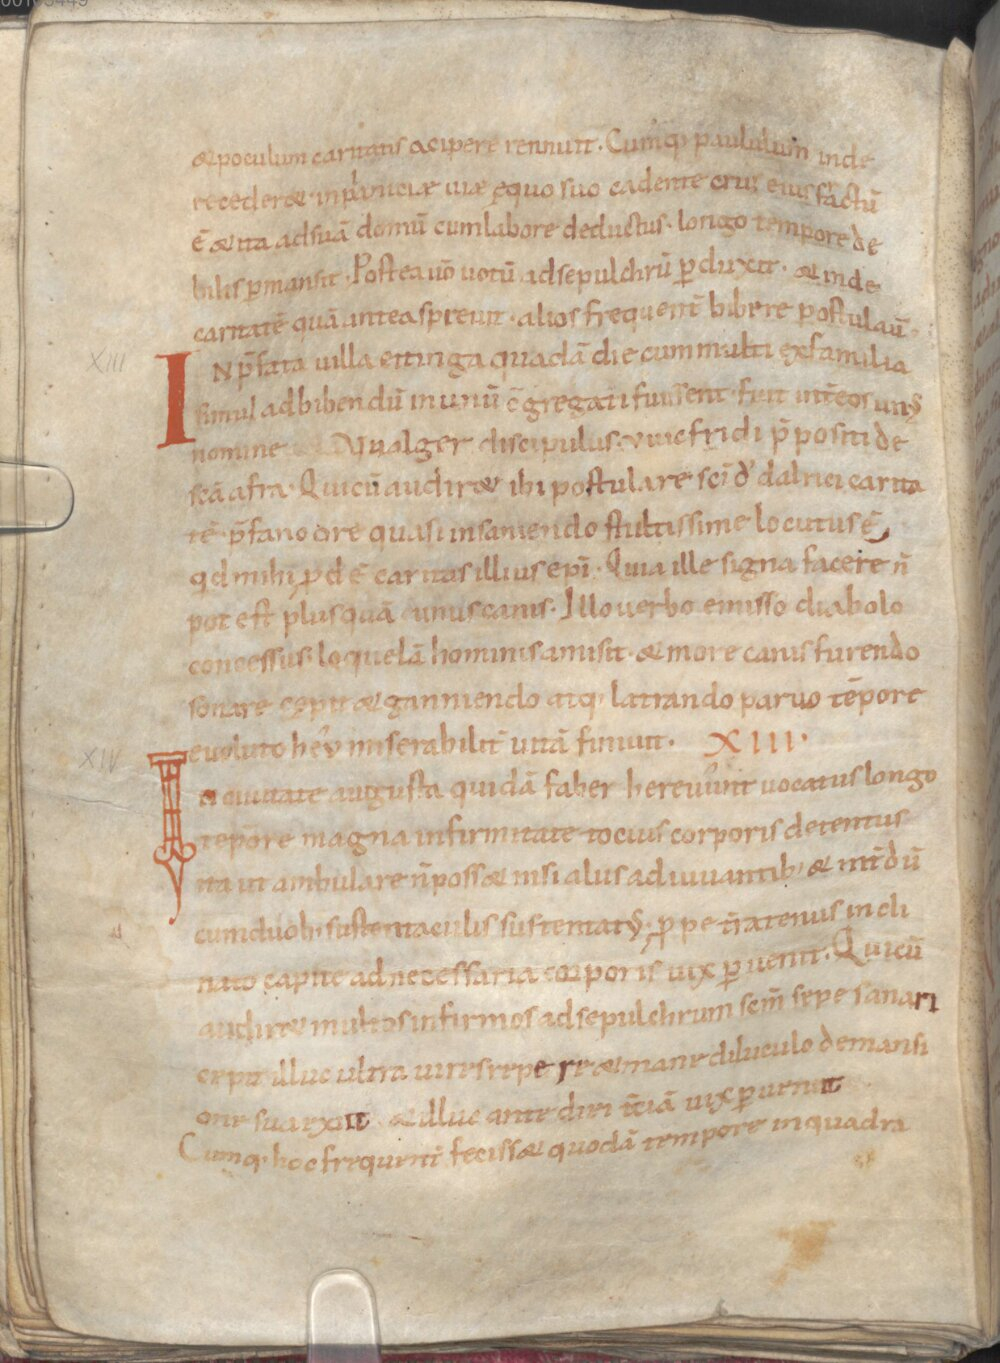 &poculum caritatis accipere rennuit. Cumq; paululum inde
receder& inplanicie uiæ equo suo cadente crus eius factū
ē & ita adsuā domū cumlabore deductus. longo tempore de
bilis pmansit. Postea uō uotū adsepulchrū pduxit. & inde
caritatē quā antea spreuit. alios frequent̄ bibere postulau̅.
XIII
IN p̄fata uilla ettinga quadā die cum multi exfamilia
simul adbibendū inunū c̄gregati fuissent. fuit int̄ eos un;
nomine Uualger discipulus uuicfridi p̄positi de
scā afra. Quicū audir& ibi postulare sci ódalrici carita
tē. p̄fano ore quasi insaniendo stultissime locutus ē
qd mihi pdē caritas illius ep̄i. Quia ille signa facere n̄
potest plus quā unus canis. Illo uerbo emisso diabolo
concessus. loquelā hominis amisit. & more canis furendo
sonare cępit & ganniendo atq; latrando paruo tēpore
euoluto heú miserabilit̄ uitā finiuit. XIII.
XIV
In ciuitate augusta quidā faber hereuúint uocatus longo
tēpore magna infirmitate tocius corporis detentus
ita ut ambulare n̄ poss& nisi aliis adiuuantib; & int̄dū
cumduob; sustentaculis sustentat; ppe t̄ratenus incli
nato capite adnecessaria corporis uix puenit. Quicū
audir& multos infirmos adsepulchrum scm̄ sepe sanari
cepit illuc ultra uires repere & mane diluculo demansi
one sua exiit & illuc ante diei t̄ciā uix puenit
Cumq; hoc frequent̄ feciss& quodā tempore inquadra